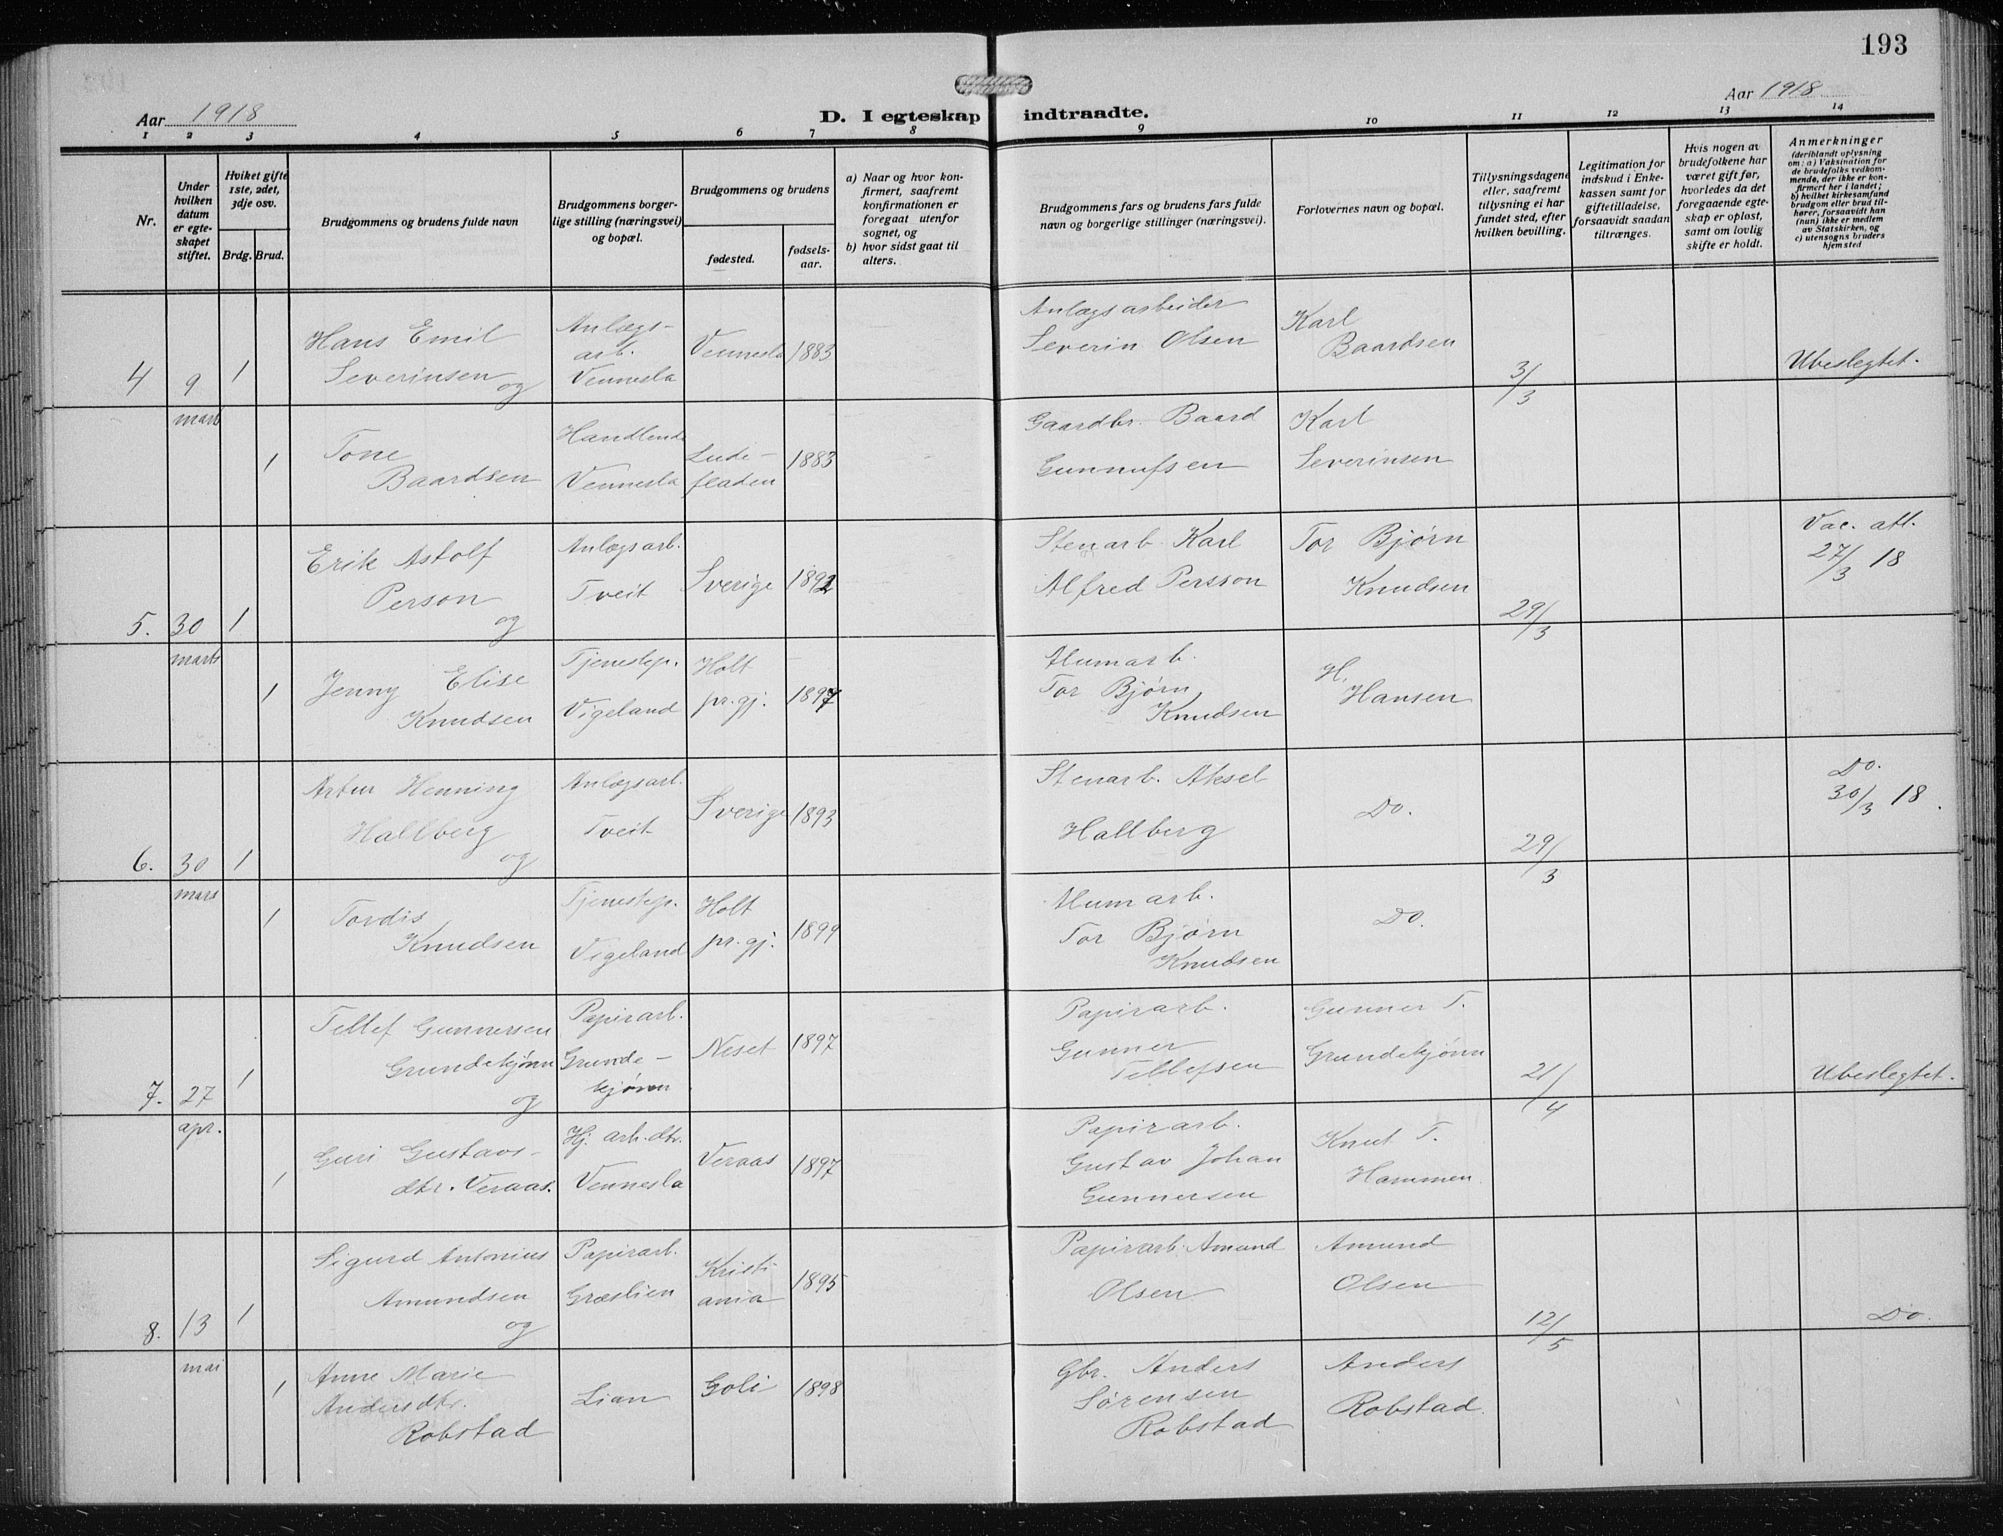 193
Aar 1918
D. I egteskap indtraadte.
Aar 1918
1 2 3 4 5 6 7 8 9 10 11 12 13 14
Nr.
Under hvilken datum er egteskapet stiftet.
Hviket gifte 1ste, 2det, 3dje osv.
Brdg. Brud.
Brudgommens og brudens fulde navn
Brudgommens borgerlige stilling (næringsvei) og bopæl.
Brudgommens og brudens
fødested.
fødselsaar.
a) Naar og hvor konfirmert, saafremt konfirmationen er foregaat utenfor sognet, og
b) hvor sidst gaat til alters.
Brudgommens fars og brudens fars fulde navn og borgerlige stillinger (næringsvei).
Forlovernes navn og bopæl.
Tillysningsdagene eller, saafremt tillysning ei har fundet sted, efter hvilken bevilling.
Legitimation for indskud i Enkekassen samt for giftetilladelse, forsaavidt saadan tiltrænges.
Hvis nogen av brudefolkene har været gift før, hvorledes da det foregaaende egteskap er opløst, samt om lovlig skifte er holdt.
Anmerkninger
(deriblandt oplysning om: a) Vaksination for de brudefolks vedkommende, der ikke er konfirmert her i landet; b) hvilket kirkesamfund brudgom eller brud tilhører, forsaavidt han (hun) ikke er medlem av Statskirken, og c) utensogns bruders hjemsted
4 9 mars 1 Hans Emil Severinsen og Anlægsarb. Vennesla Vennesla 1883 Anlægsarbeider Severin Olsen Karl Baardsen 3/3 Ubeslegtet.
1 Tone Baardsen Handlende Vennesla Ludefladen 1883 Gaardbr. Baard Gunnufsen Karl Severinsen
5. 30 marts 1 Erik Astolf Person og Anlægsarb. Tveit Sverige 1892 Stenarb. Karl Alfred Persson Tor Bjørn Knudsen 29/3 Vac. att. 27/3 18
1 Jenny Elise Knudsen Tjenestep. Vigeland Holt pr. gj. 1897 Alumarb. Tor Bjørn Knudsen H. Hansen
6. 30 mars 1 Artur Henning Hallberg og Anlægsarb. Tveit Sverige 1893 Stenarb. Aksel Hallberg Do. 29/3 Do. 30/3 18.
1 Tordis Knudsen Tjenestep. Vigeland Holt pr. gj. 1899 Alumarb. Tor Bjørn Knudsen Do.
7. 27 apr. 1 Tellef Gunnersen Grundekjønn og Papirarb. Grundekjønn Neset 1897 Papirarb. Gunner Tellefsen Gunner T. Grundekjønn 21/4 Ubeslegtet.
1 Guri Gustavsdtr. Veraas. Hj. arb. dtr. Vennesla Veraas 1897 Papirarb. Gustav Johan Gunnersen Knut T. Hammen.
8. 13 mai 1 Sigurd Antonius Amundsen og Papirarb. Græslien Kristiania 1895 Papirarb. Amund Olsen Amund Olsen 12/5 Do.
1 Anne Marie Andersdtr. Robstad Lian Goli 1898 Gbr. Anders Sørensen Robstad Anders Robstad.